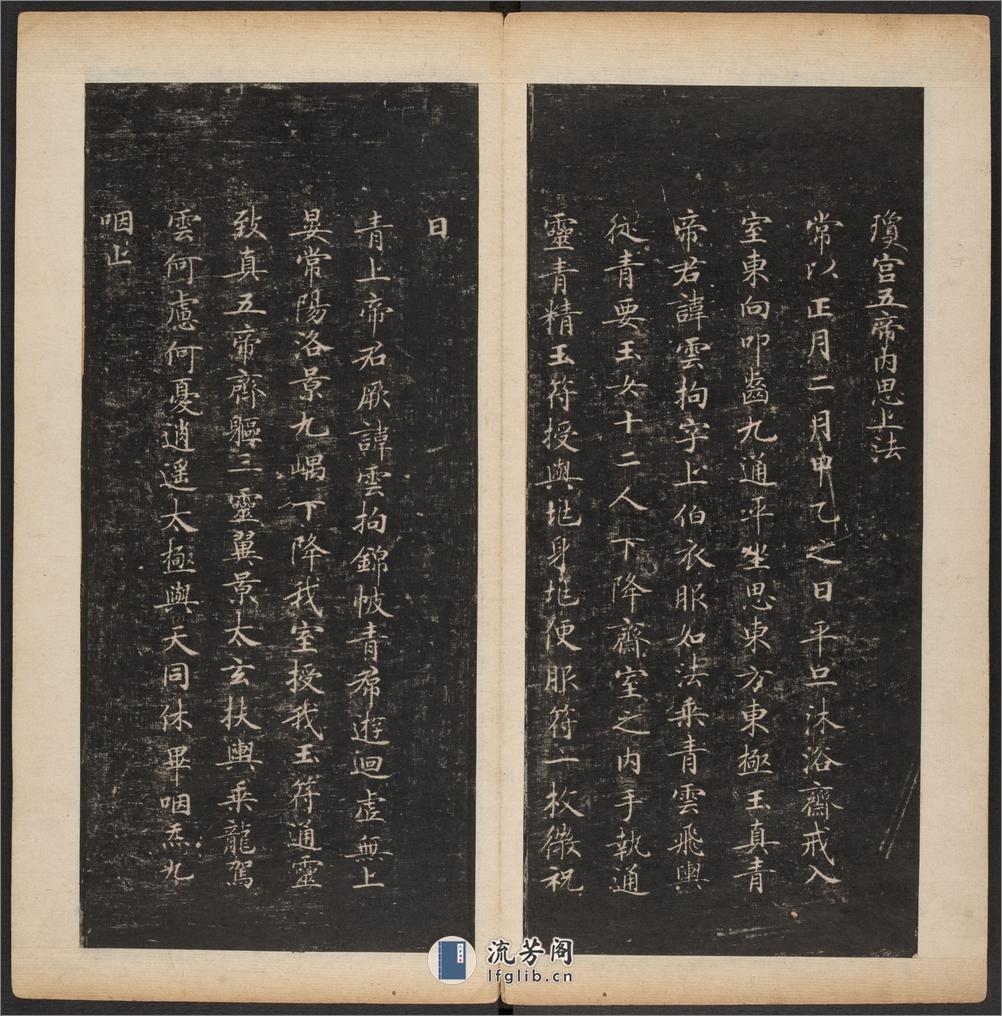 瓊宫五帝内思上法
常以正月二月甲乙之日平旦沐浴齋戒入
室東向叩齒九通平坐思東方東極玉真青
帝君諱雲拘字上伯衣服如法乘青雲飛輿
從青要玉女十二人下降齋室之内手執通
靈青精玉符授與地身地便服符二枚微祝
曰
青上帝君厥諱雲拘錦帔青帬遊迴虚無上
晏常陽洛景九嵎下降我室授我玉符通靈
致真五帝齊軀三靈翼景太玄扶輿乘龍駕
雲何慮何憂逍遥太極與天同休畢咽炁九
咽止
流芳阁
lfglib.cn